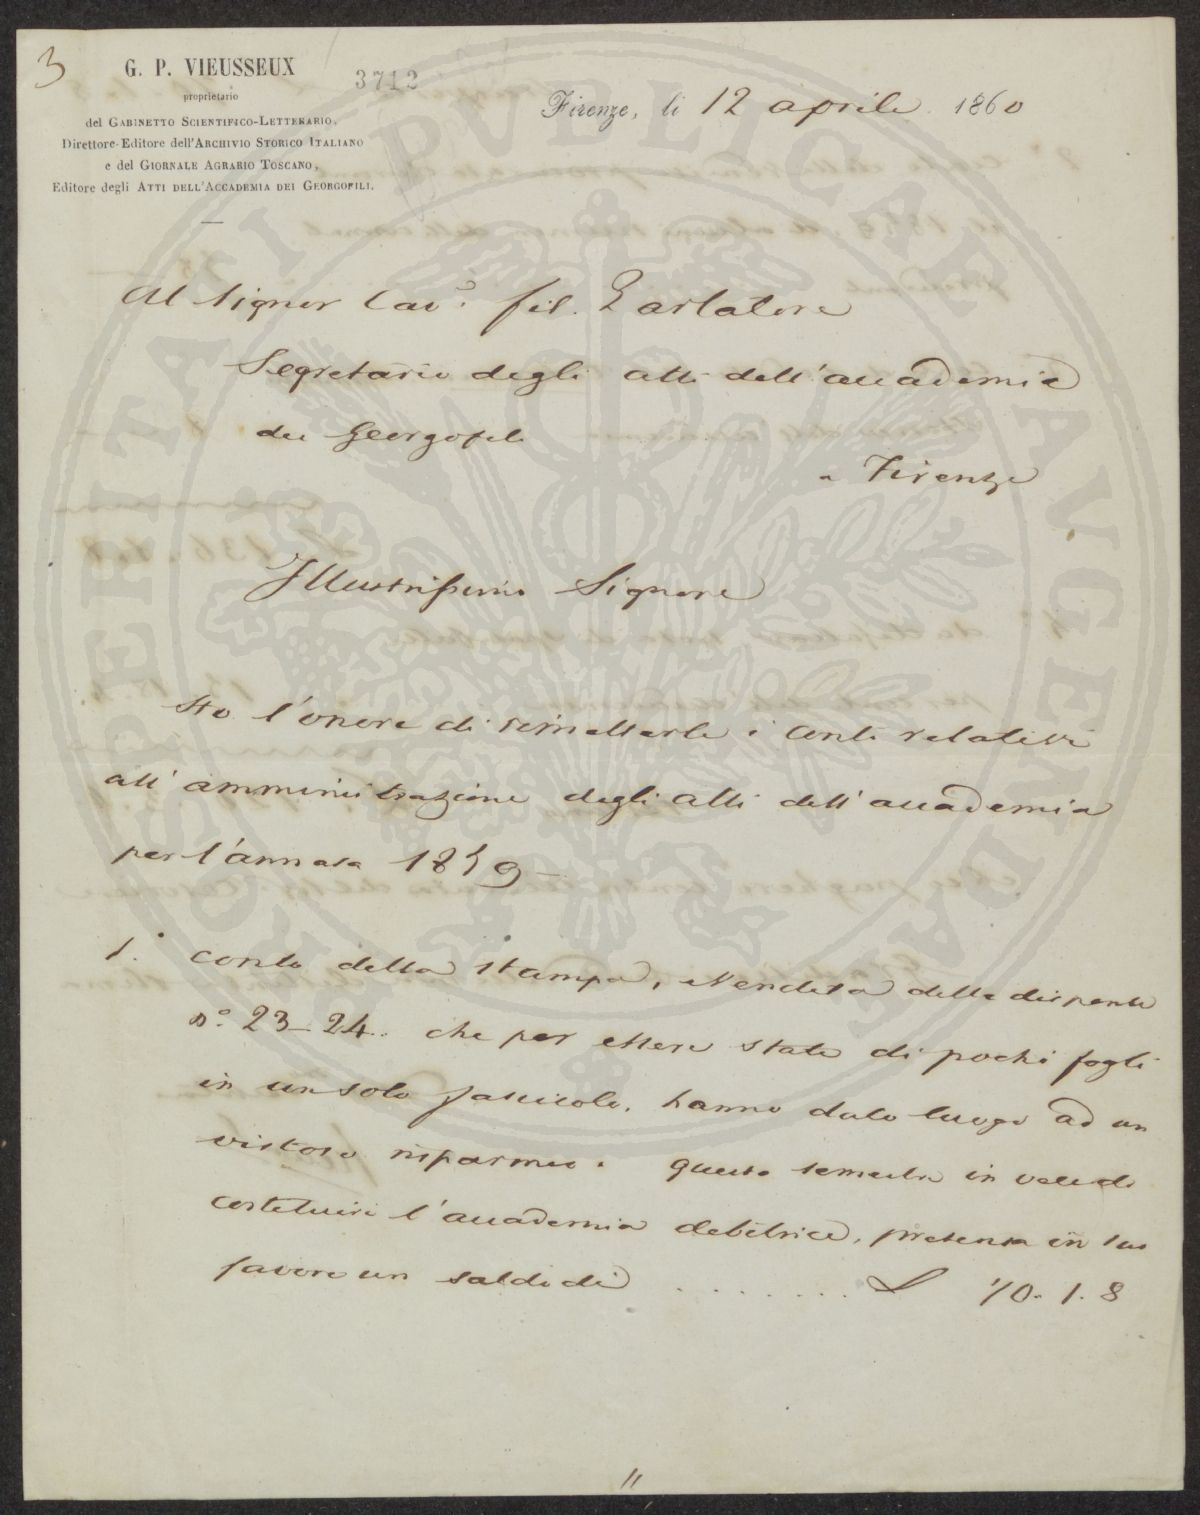 3
G. P. VIEUSSEUX
proprietario
del GABINETTO SCIENTIFICO-LETTERARIO,
Direttore-Editore dell'ARCHIVIO STORICO ITALIANO
e del GIORNALE AGRARIO TOSCANO,
Editore degli ATTI DELL'ACCADEMIA DEI GEORGOFILI.
3712
Firenze, li 12 aprile 1860
Al Signor Cav.e fil. Parlatore
Segretario degli atti dell'accademia
dei Georgofili
a Firenze
Illustrissimo Signore
Ho l'onore di rimetterle i conti relativi
all'amministrazione degli atti dell'accademia
per l'annata 1859 –
1.° conto della stampa, e Vendita delle dispense
n.° 23–24. che per essere state di pochi fogli
in un solo fascicolo, hanno dato luogo ad un
vistoso risparmio. questo semestre in vece di
costituire l'accademia debitrice, presenta in suo
favore un saldo di . . . . . . . L 70. 1. 8
PROSPERITATI PVBLICAE AVGENDAE